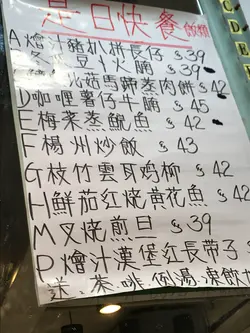 是日快餐 飯類
A燴汁豬扒拼長仔 $39
豆 火腩 $39
北菇馬蹄蒸肉餅 $42
D咖喱薯仔牛腩 $45
E梅菜蒸鯇魚 $42
F楊州炒飯 $43
G枝竹雲耳鸡柳 $42
H鮮茄紅燒黃花魚 $42
M叉燒煎旦 $39
P燴汁漢堡紅長帶子
送 茶.啡.例湯.凍飲